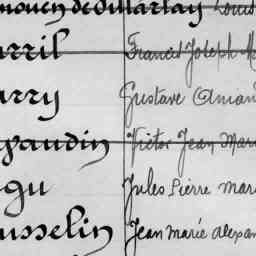 nouën de Dillarlay Louis
arril Francis Joseph M
arry Gustave Aman
paudin Victor Jean Mari
gu Jules Pierre mar
usselin Jean marie alexan